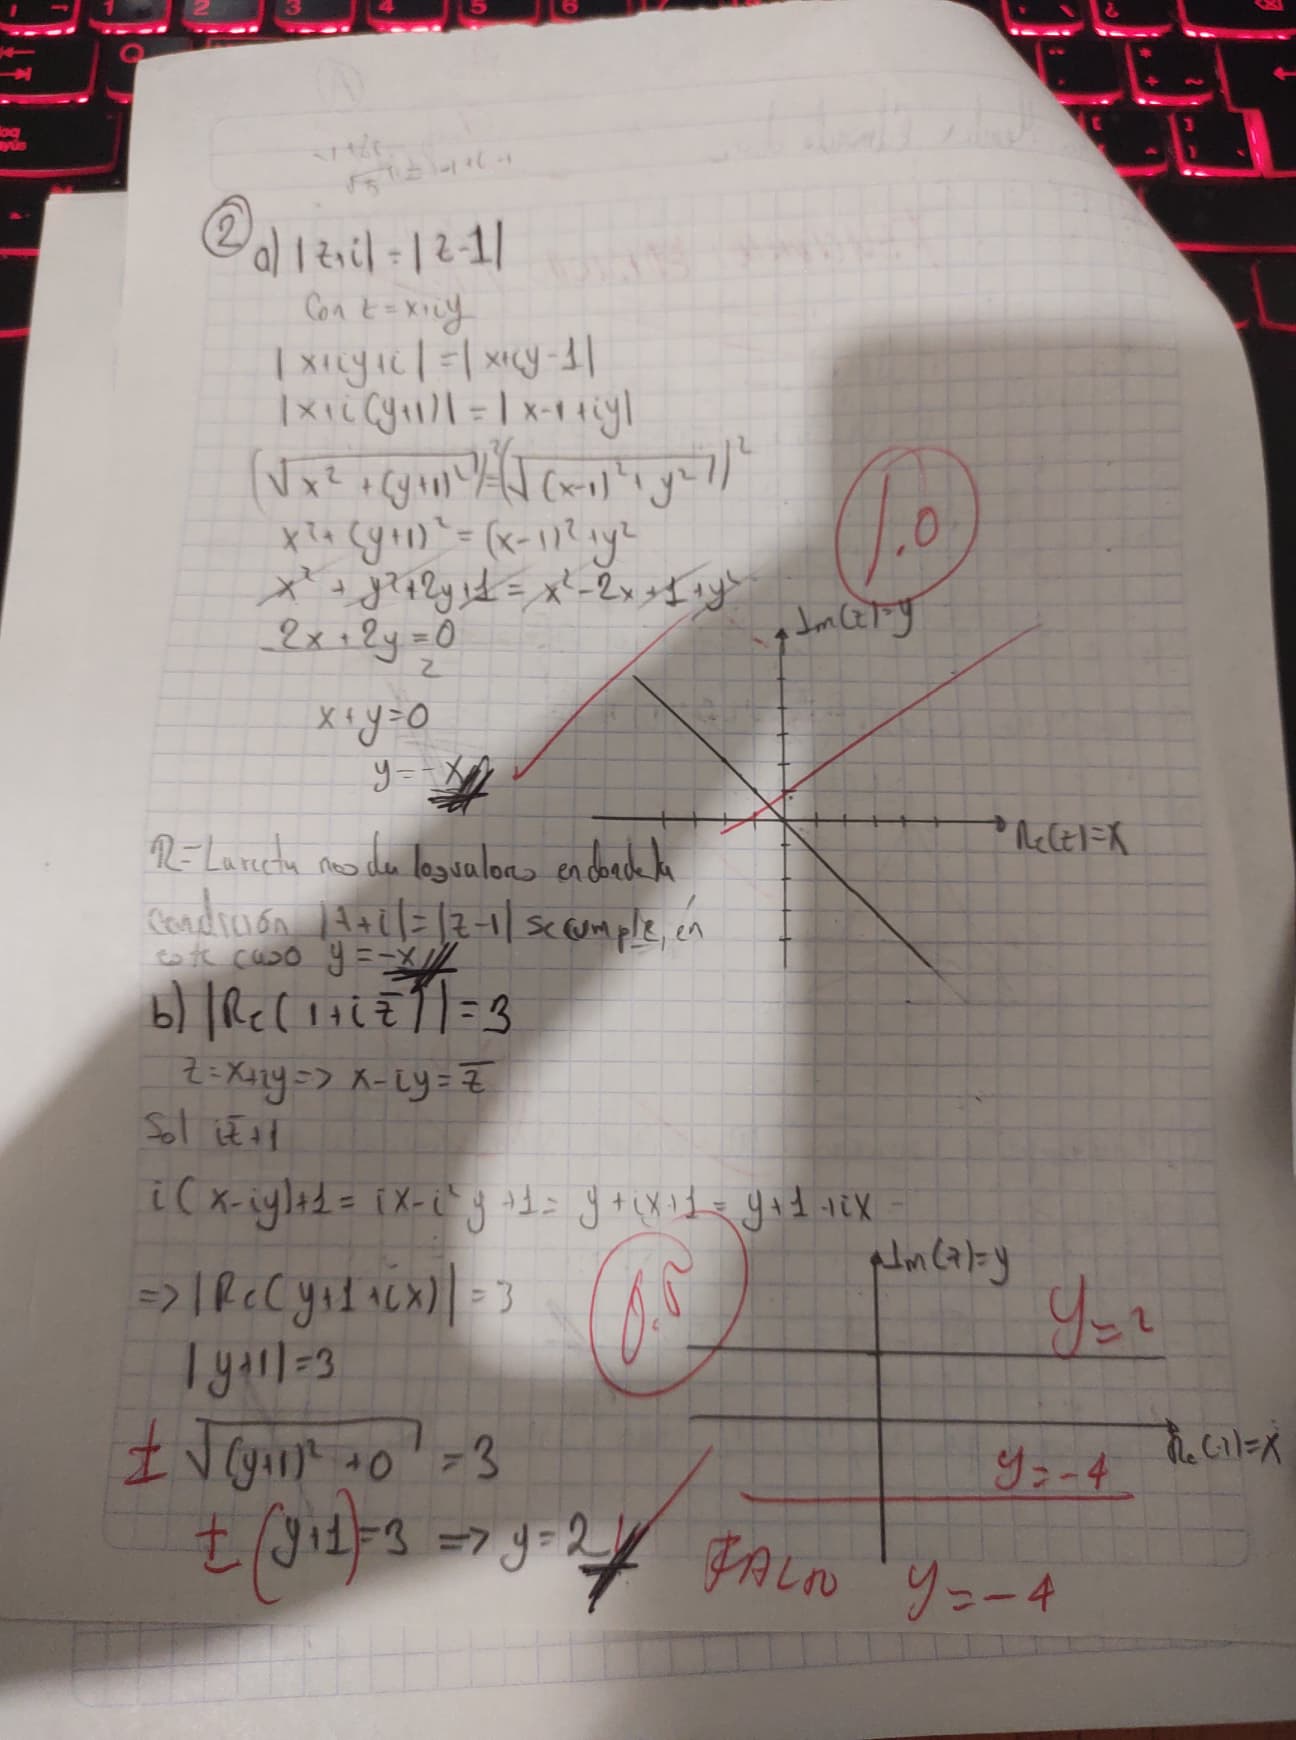 ②
a) |z+i| = |z-1|
Con z = x+iy
|x+iy+i| = |x+iy-1|
|x+i(y+1)| = |x-1+iy|
(√(x²+(y+1)²))² = (√((x-1)²+y²))²
x²+(y+1)² = (x-1)²+y²
x²+y²+2y+1 = x²-2x+1+y²
2x+2y=0
2
x+y=0
y=-x
1.0
Im(z)=y
Re(z)=x
R= La recta nos da los valores en donde la
condición |z+i|=|z-1| se cumple, en
este caso y=-x
b) |Re(1+iz̅)|=3
z=x+iy=> x-iy=z̅
Sol iz̅+1
i(x-iy)+1= ix-i²y+1= y+ix+1= y+1+ix
=> |Re(y+1+ix)| = 3
|y+1|=3
± √((y+1)²+0) = 3
± (y+1)=3 => y=2
0.5
Im(z)=y
y=2
Re(z)=x
y=-4
FALTO y=-4